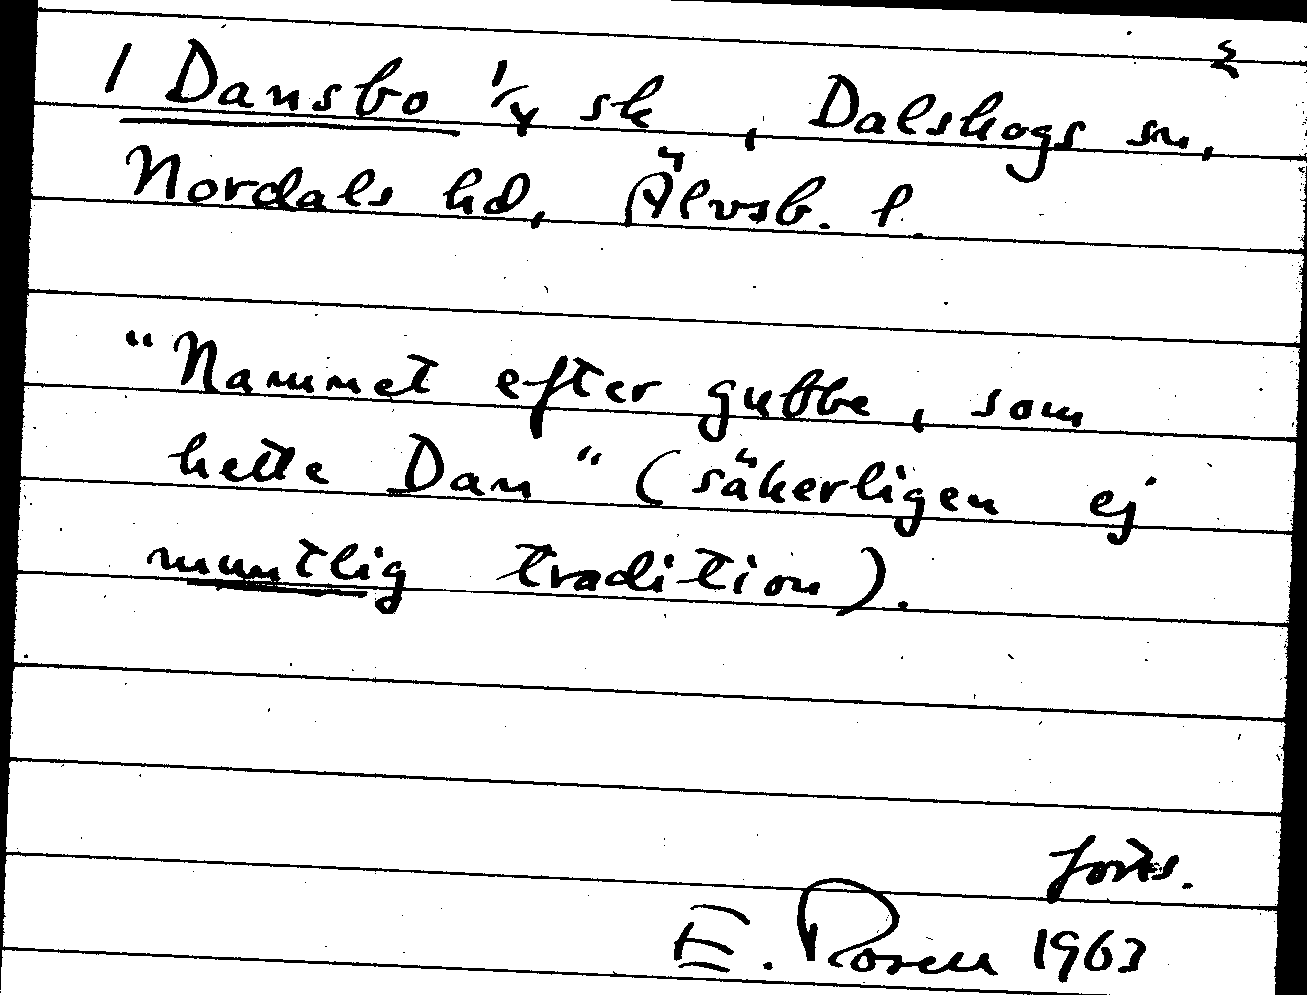 1 Dansbo 1/4 sk, Dalskogs sn,
Nordals hd, Älvsb. l.
"Namnet efter gubbe, som
hette Dan" (säkerligen ej
muntlig tradition).
forts.
E. Rosell 1963